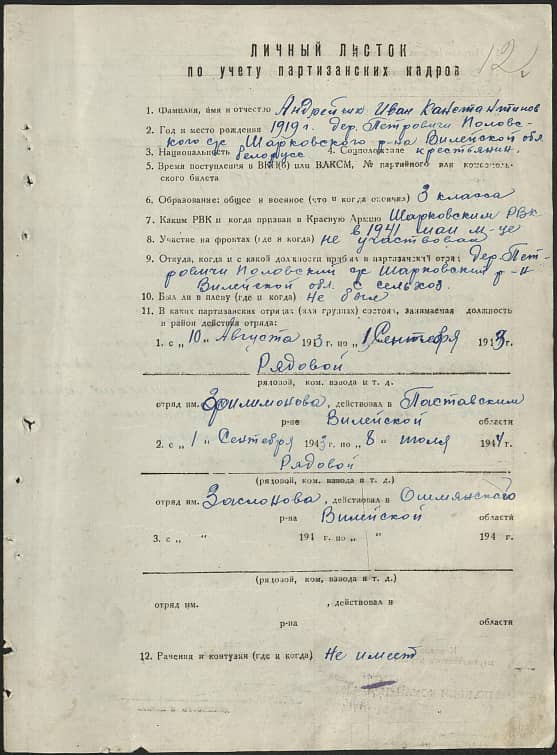 12
ЛИЧНЫЙ ЛИСТОК
по учету партизанских кадров
1. Фамилия, имя и отчество Андрейчик Иван Константинов
2. Год и место рождения 1919 г. дер. Петровичи Половс-
кого с/с Шарковского р-на Вилейской обл.
3. Национальность белорусс 4. Соцположение крестьянин.
5. Время поступления в ВКП(б) или ВЛКСМ, № партийного или комсомоль-
ского билета
6. Образование: общее и военное (что и когда окончил) 3 класса
7. Каким РВК и когда призван в Красную Армию Шарковским РВК
в 1941 май м-це
8. Участие на фронтах (где и когда) не участвовал
9. Откуда, когда и с какой должности прибыл в партизанский отряд дер. Пет-
ровичи Половский с/с Шарковский р-н
Вилейской обл. с сельхоз.
10. Был ли в плену (где и когда) Не был
11. В каких партизанских отрядах (или группах) состоял, занимаемая должность
и район действия отряда:
1. с „10„ Августа 1943 г. по „1„ Сентября 1943 г.
Рядовой
рядовой, ком. взвода и т. д.
отряд им. Филимонова, действовал в Поставским
р-не Вилейской области
2. с „1„ Сентября 1943 г. по „8„ июля 1944 г.
Рядовой
(рядовой, ком. взвода и т. д.)
отряд им. Заслонова, действовал в Ошмянского
р-на Вилейской области
3. с „ „ 194 г. по „ „ 194 г.
(рядовой, ком. взвода и т. д.)
отряд им. , действовал в
р-на области
12. Ранения и контузии (где и когда) Не имеет